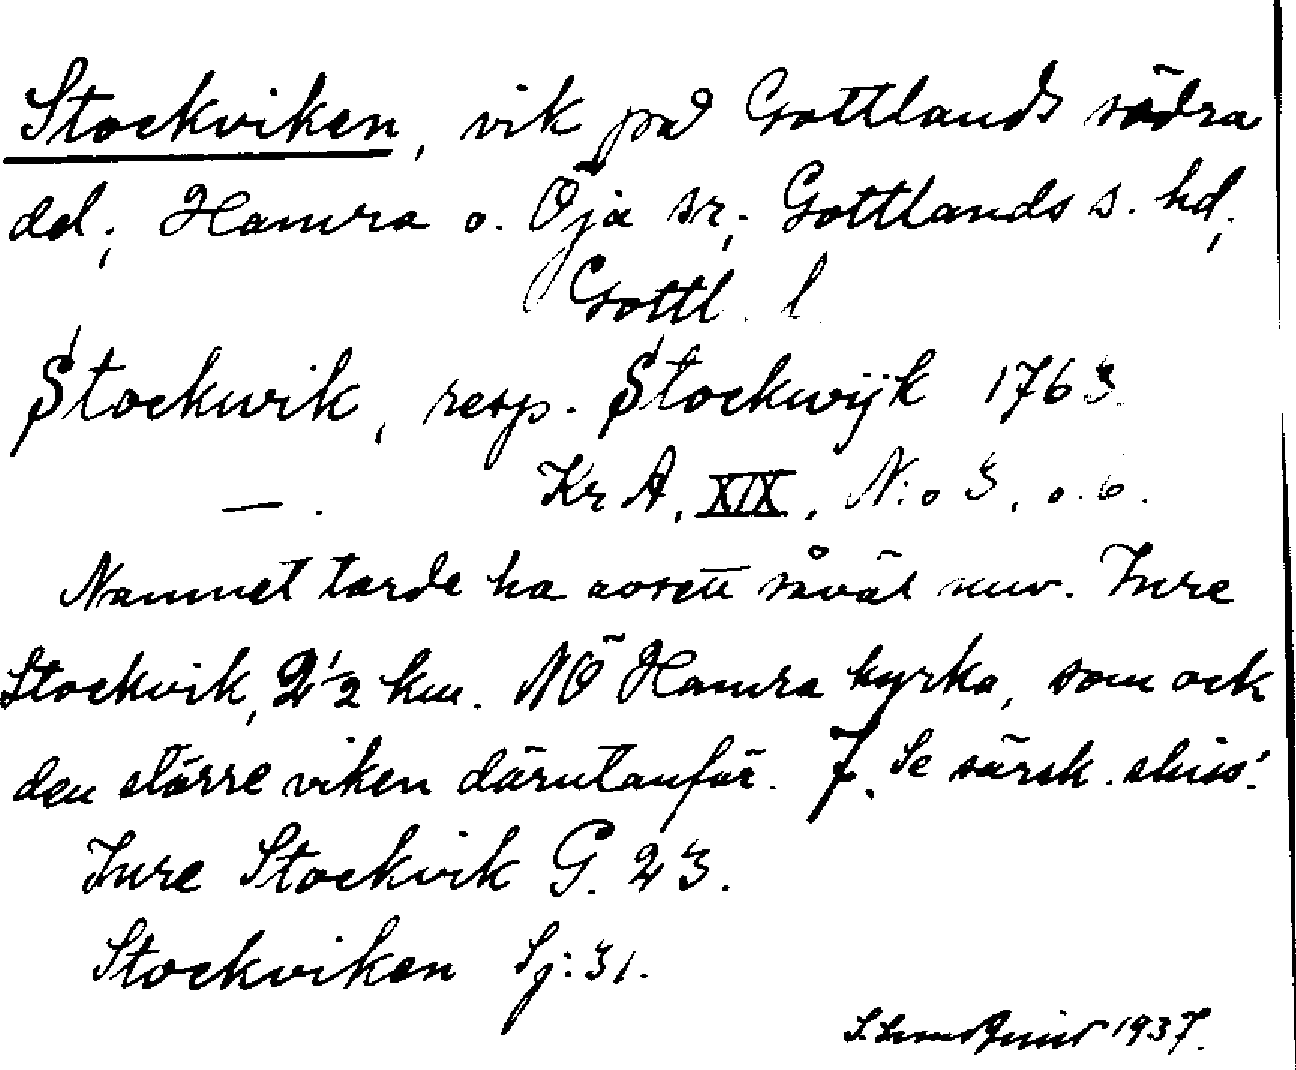 Stockviken, vik på Gottlands södra
del; Hamra o. Öja sr; Gottlands s. hd;
Gottl. l.
Stockwik, resp. Stockwijk 1763.
—. Kr A, XIX, N:o 3, o. 6.
Namnet torde ha avsett såväl nuv. Inre
Stockvik, 2 1/2 km. NÖ Hamra kyrka, som ock
den större viken därutanför. J. Se särsk. skiss!
Inre Stockvik G. 23.
Stockviken Sj: 31.
1937.